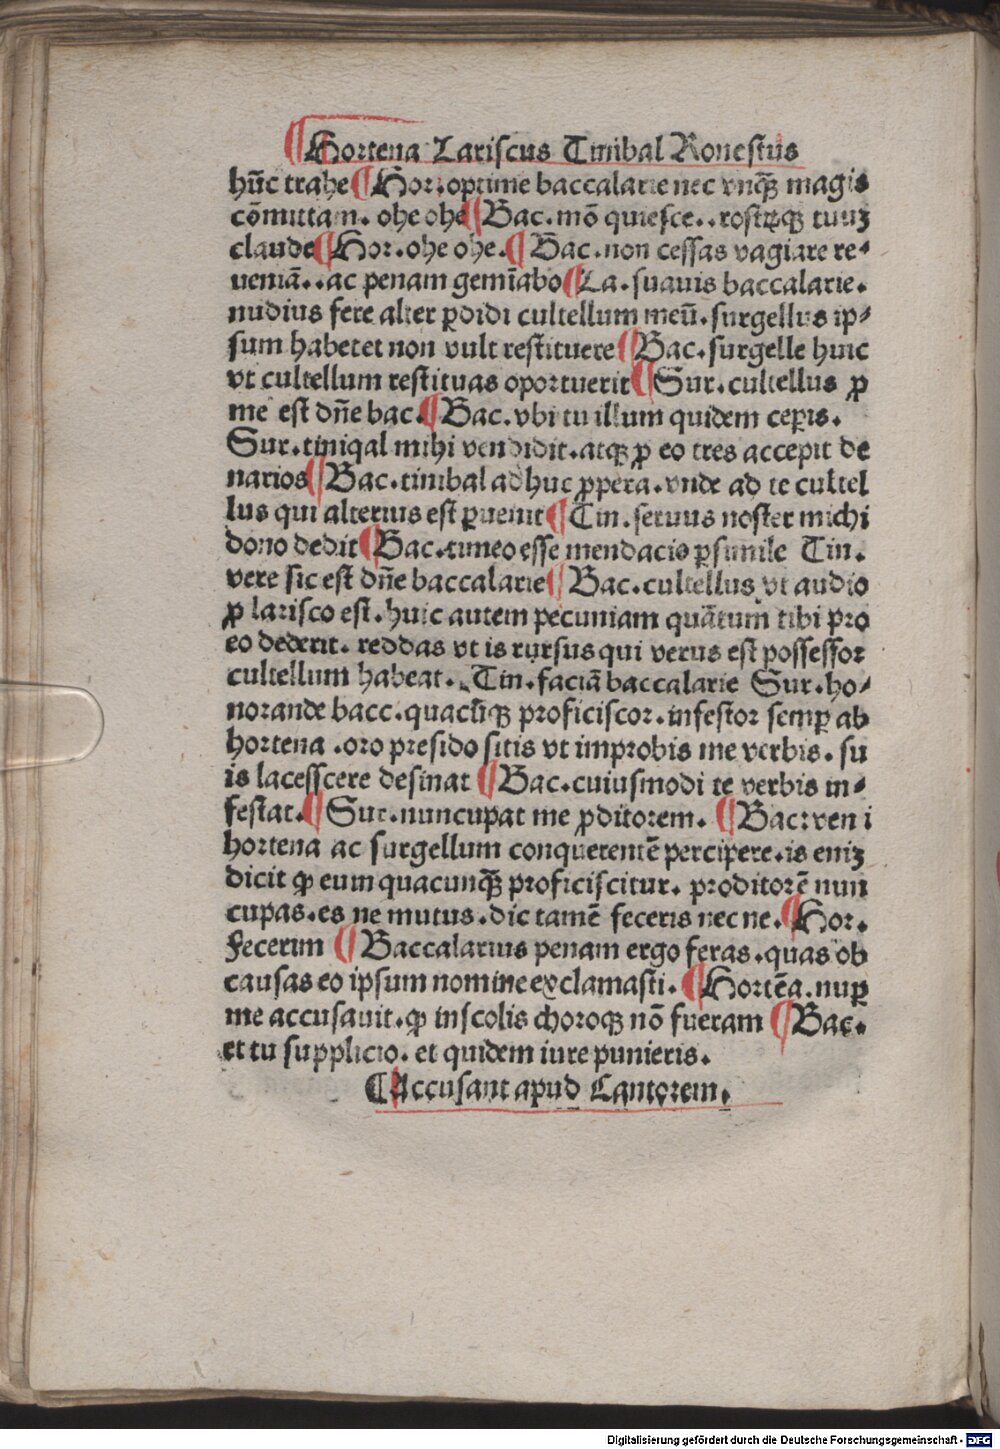 ¶Hortena Lariscus Tinibal Ronestus
hũc trahe ¶Hor. optime baccalarie nec vnqꝫ magis
cõmittam. ohe ohe ¶Bac. mõ quiesce.. rostrꝫqꝫ tuuꝫ
claude ¶Hor. ohe ohe. ¶Bac. non cessas vagiare re⸗
ueniã.. ac penam gemĩabo ¶La. suauis baccalarie.
nudius fere alter ꝑdidi cultellum meũ. surgellus ip⸗
sum habetet non vult restituere ¶Bac. surgelle huic
vt cultellum restituas oportuerit ¶Sur. cultellus ꝓ
me est dñe bac. ¶Bac. vbi tu illum quidem ceꝑis.
Sur. tiniqal mihi vendidit. atqꝫ ꝓ eo tres accepit de
narios ¶Bac. tinibal ad huc ꝓpera. vnde ad te cultel
lus qui alterius est ꝑuenit ¶Tin. seruus noster michi
dono dedit ¶Bac. timeo esse mendacis ꝑsimile Tin.
vere sic est dñe baccalarie ¶Bac. cultellus vt audio
ꝓ larisco est. huic autem pecuniam quãtum tibi pro
eo dederit. reddas vt is rursus qui verus est possessor
cultellum habeat. Tin. faciã baccalarie Sur. ho⸗
norande bacc. quacũqꝫ proficiscor. infestor semꝑ ab
hortena . oro presido sitis vt improbis me verbis. su
is lacesscere desinat ¶Bac. cuiusmodi te verbis in⸗
festat. ¶Sur. nuncupat me ꝓditorem. ¶Bac: ven i
hortena ac surgellum conquerentẽ percipere. is eniꝫ
dicit ꝙ eum quacunqꝫ proficiscitur. proditorẽ nun
cupas. es ne mutus. dic tamẽ feceris nec ne. ¶Hor.
Fecerim ¶Baccalarius penam ergo feras. quas ob
causas eo ipsum nomine exclamasti. ¶Hortẽa. nuꝑ
me accusauit. ꝙ inscolis choroqꝫ nõ fueram ¶Bac.
et tu supplicio. et quidem iure punieris.
¶Accusant apud Cantorem.
Digitalisierung gefördert durch die Deutsche Forschungsgemeinschaft - DFG